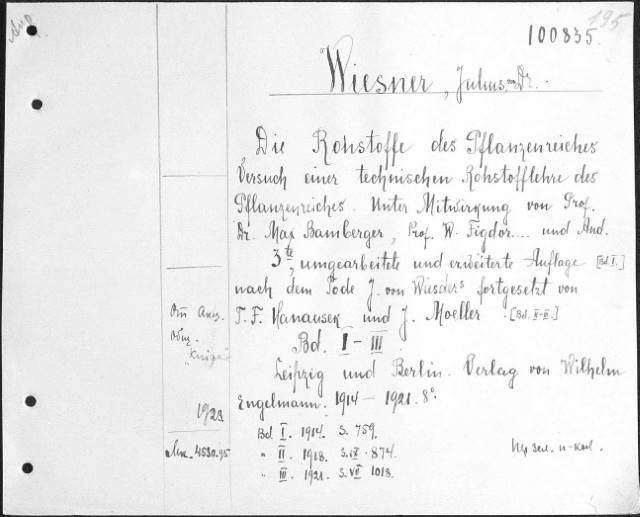 195
100835
Wiesner, Julius von Dr.
Die Rohstoffe des Pflanzenreiches
Versuch einer technischen Rohstofflehre des
Pflanzenreiches. Unter Mitwirkung von Prof.
Dr. Max Bamberger, Prof. W. Figdor.... und And.
3te, umgearbeitete und erweiterte Auflage [Bd I.]
nach dem Tode J. von Wiesners fortgesetzt von
T. F. Hanausek und J. Moeller. [Bd. II-III.]
Bd. I - III
Leipzig und Berlin. Verlag von Wilhelm
Engelmann. 1914 - 1921. 8°.
Bd I. 1914. S. 759.
" II. 1918. S. IX. 874.
" III. 1921. S. VII 1018.
От Акц.
Общ.
"Книга"
1923
4530.95